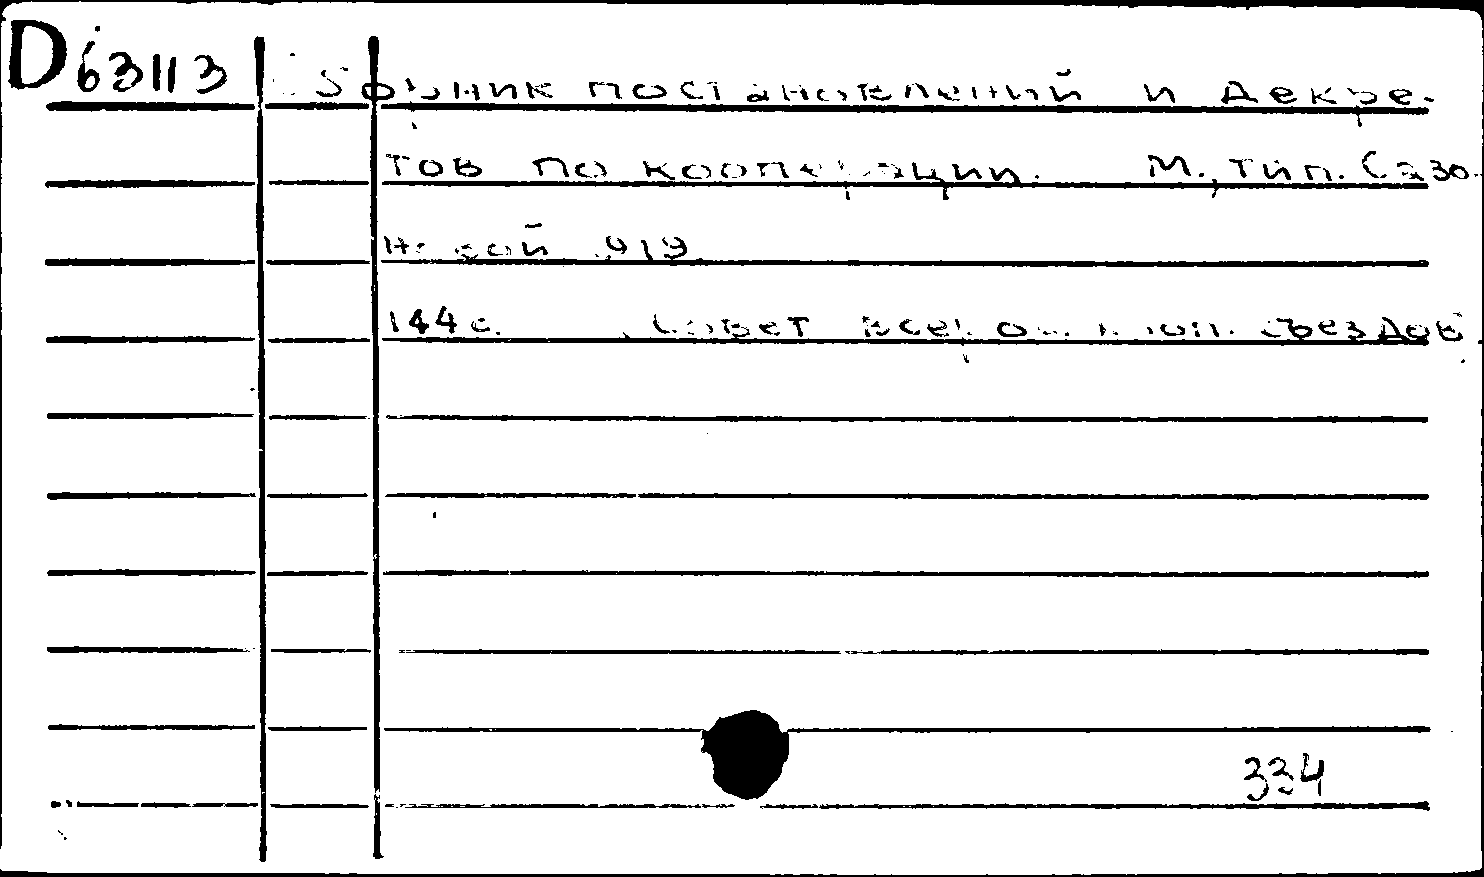 D 63113 Сборник постановлений и декре-
тов по кооперации. М., тип. Сазо-
новой 1919
144 с. Совет всерос. кооп. съездов
334